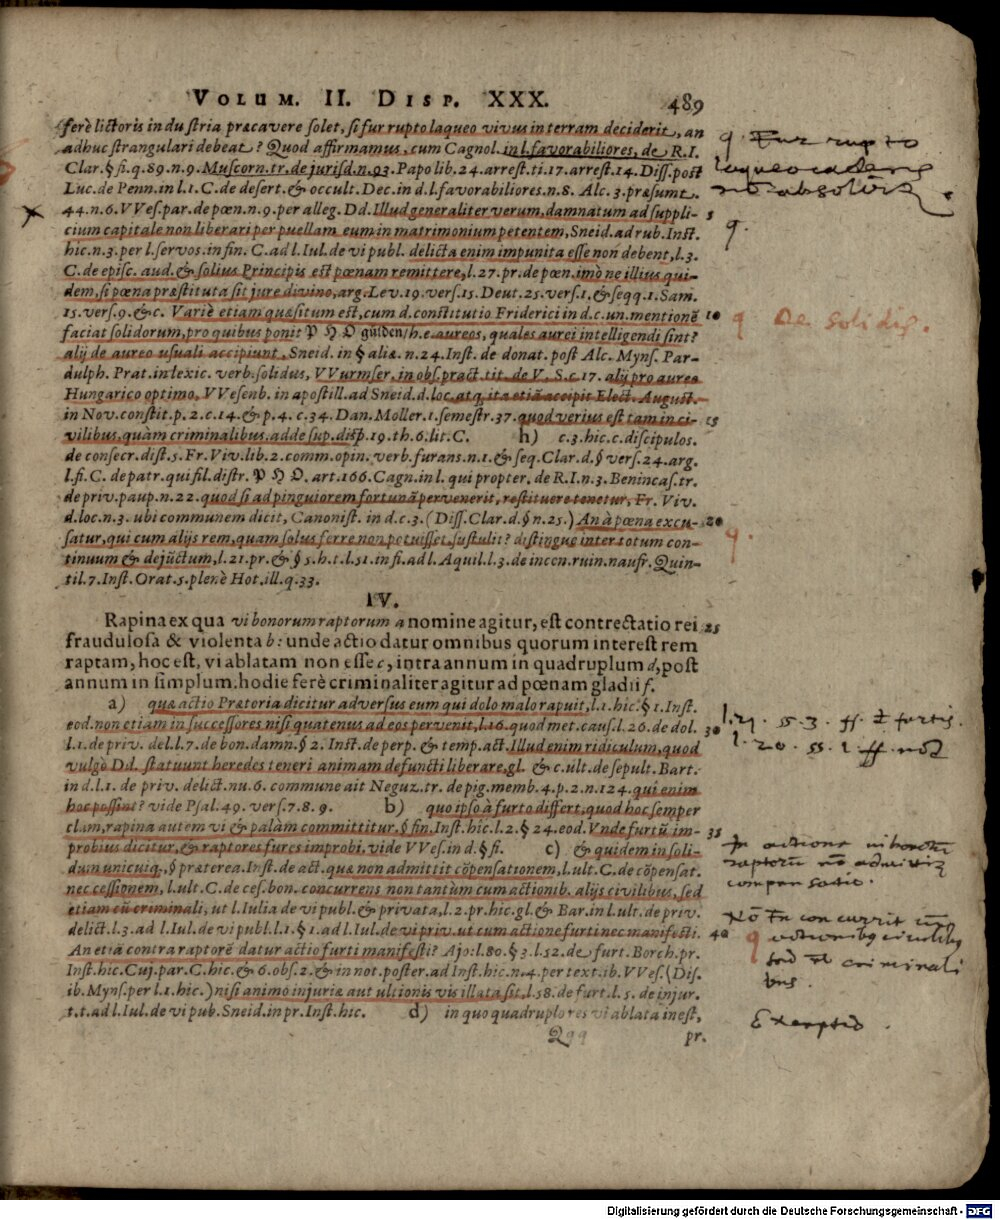 VOLUM. II. DISP. XXX. 489
ferè lictoris industria præcavere solet, si fur rupto laqueo vivus in terram deciderit, an
adhuc strangulari debeat? Quod affirmamus, cum Cagnol. in l. favorabiliores, de R.I.
Clar. § fi. q. 89. n. 9. Muscorn. tr. de jurisd. n. 93. Papo lib. 24. arrest. ti. 17. arrest. 14. Diss. post
Luc. de Penn. in l. 1. C. de desert. & occult. Dec. in d. l. favorabiliores. n. 8. Alc. 3. præsumt.
44. n. 6. VVes. par. de pœn. n. 9. per alleg. Dd. Illud generaliter verum, damnatum ad suppli- 5
cium capitale non liberari per puellam eum in matrimonium petentem, Sneid. ad rub. Inst.
hic. n. 3. per l. servos. in fin. C. ad l. Iul. de vi publ. delicta enim impunita esse non debent, l. 3.
C. de episc. aud. & solius Principis est pœnam remittere, l. 27. pr. de pœn. imò ne illius qui-
dem, si pœna præstituta sit jure divino, arg. Lev. 19. vers. 15. Deut. 25. vers. 1. & seqq. 1. Sam.
15. vers. 9. & c. Variè etiam quæsitum est, cum d. constitutio Friderici in d. c. un. mentionē 10
faciat solidorum, pro quibus ponit P H O gülden/ h. e. aureos, quales aurei intelligendi sint?
alij de aureo usuali accipiunt, Sneid. in § aliæ. n. 24. Inst. de donat. post Alc. Myns. Par-
dulph. Prat. in lexic. verb. solidus, VVurmser, in obs. pract. tit. de V. S. c. 17. alij pro aureo
Hungarico optimo, VVesenb. in apostill. ad Sneid. d. loc. atq, ita etiā accipit Elect. August.
in Nov. constit. p. 2. c. 14. & p. 4. c. 34. Dan. Moller. 1. semestr. 37. quod verius est tam in ci- 15
vilibus, quàm criminalibus, adde sup. disp. 19. th. 6. lit. C. h) c. 3. hic. c. discipulos.
de consecr. dist. 5. Fr. Viv. lib. 2. comm. opin. verb. furans. n. 1. & seq. Clar. d. § vers. 24. arg.
l. fi. C. de patr. qui fil. distr. P H O. art. 166. Cagn. in l. qui propter. de R.I. n. 3. Benincas. tr.
de priv. paup. n. 22. quod si ad pinguiorem fortunā pervenerit, restituere tenetur, Fr. Viv.
d. loc. n. 3. ubi communem dicit, Canonist. in d. c. 3. (Diss. Clar. d. § n. 25.) An à pœna excu- 20
satur, qui cum alijs rem, quam solus ferre non potuisset, sustulit? distingue inter totum con-
tinuum & dejūctum, l. 21. pr. & § 5. h. t. l. 51. in fi. ad l. Aquil. l. 3. de incen. ruin. naufr. Quin-
til. 7. Inst. Orat. 5. plenè Hot. ill. q. 33.
IV.
Rapina ex qua vi bonorum raptorum a nomine agitur, est contrectatio rei 25
fraudulosa & violenta b: unde actio datur omnibus quorum interest rem
raptam, hoc est, vi ablatam non esse c, intra annum in quadruplum d, post
annum in simplum. hodie ferè criminaliter agitur ad pœnam gladii f.
a) quæ actio Prætoria dicitur adversus eum qui dolo malo rapuit, l. 1. hic. § 1. Inst.
eod. non etiam in successores nisi quatenus ad eos pervenit, l. 16. quod met. caus. l. 26. de dol. 30
l. 1. de priv. del. l. 7. de bon. damn. § 2. Inst. de perp. & temp. act. Illud enim ridiculum, quod
vulgò Dd. statuunt heredes teneri animam defuncti liberare, gl. & c. ult. de sepult. Bart.
in d. l. 1. de priv. delict. nu. 6. commune ait Neguz. tr. de pig. memb. 4. p. 2. n. 124. qui enim
hoc possint? vide Psal. 49. vers. 7. 8. 9. b) quo ipso à furto differt, quod hoc semper
clam, rapina autem vi & palàm committitur. § fin. Inst. hic. l. 2. § 24. eod. Vnde furtū im- 35
probius dicitur, & raptores fures improbi. vide VVes. in d. § fi. c) & quidem in soli-
dum unicuiq,, § præterea. Inst. de act. quæ non admittit cōpensationem, l. ult. C. de cōpensat.
nec cessionem, l. ult. C. de ces. bon. concurrens non tantùm cum actionib. alijs civilibus, sed
etiam cū criminali, ut l. Iulia de vi publ. & privata, l. 2. pr. hic. gl. & Bar. in l. ult. de priv.
delict. l. 3. ad l. Iul. de vi publ. l. 1. § 1. ad l. Iul. de vi priv. ut cum actione furti nec manifesti. 40
An etiā contra raptorē datur actio furti manifesti? Ajo: l. 80. § 3. l. 52. de furt. Borch. pr.
Inst. hic. Cuj. par. C. hic. & 6. obs. 2. & in not. poster. ad Inst. hic. n. 4. per text. ib. VVes. (Dis.
ib. Myns. per l. 1. hic.) nisi animo injuriæ aut ultionis vis illata sit, l. 58. de furt. l. 5. de injur.
t. t. ad l. Iul. de vi pub. Sneid. in pr. Inst. hic. d) in quo quadruplo res vi ablata inest,
Qqq pr.
q. Fur rupto
laqueo cadens
q.
q De solidis.
q.
In actione vi bonorū
raptorū nō admittit
compensatio.
Nō concurrit
q actionibus civilibus
sed criminali
bus.
Exceptio.